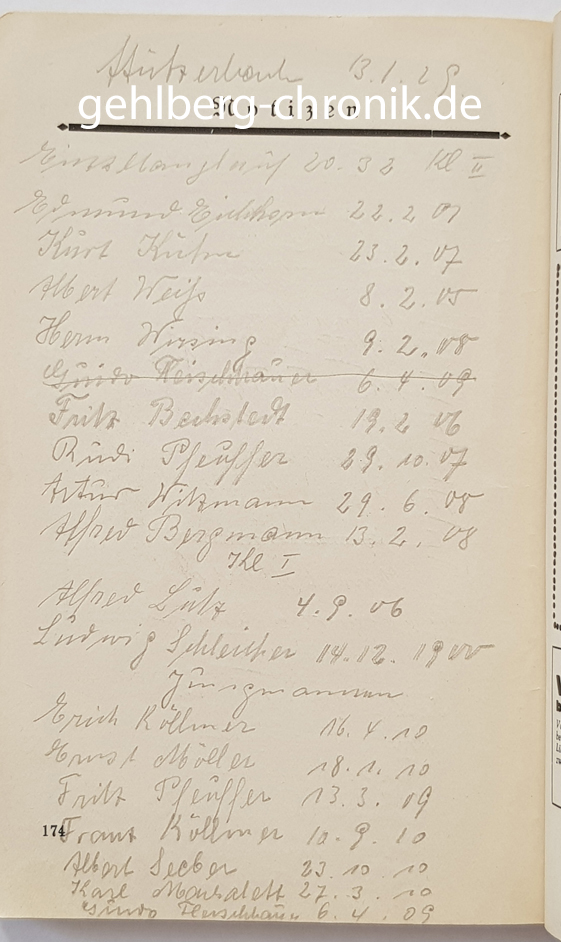 Stützerbach 13.1.29.
gehlberg-chronik.de
Notizen
Einzellanglauf 20.32 Kl II
Edmund Eichhorn 22.2 07
Kurt Kühn 23.2.07
Albert Weiß 8.2.05
Herm Wirsing 9.2.08
Guido Fleischhauer 6.4.09
Fritz Bechstedt 19.2 06
Rudi Pfeuffer 29.10.07
Artur Witzmann 29.6.08
Alfred Bergmann 13.2.08
Kl I
Alfred Lutz 4.9.06
Ludwig Schleicher 14.12.1900
Jungmannen
Erich Köllmer 16.4.10
Ernst Möller 18.1.10
Fritz Pfeuffer 13.3.09
174
Franz Köllmer 10.9.10
Albert Seeber 23.10.10
Karl 27.3.10
Guido Fleischhauer 6.4.09